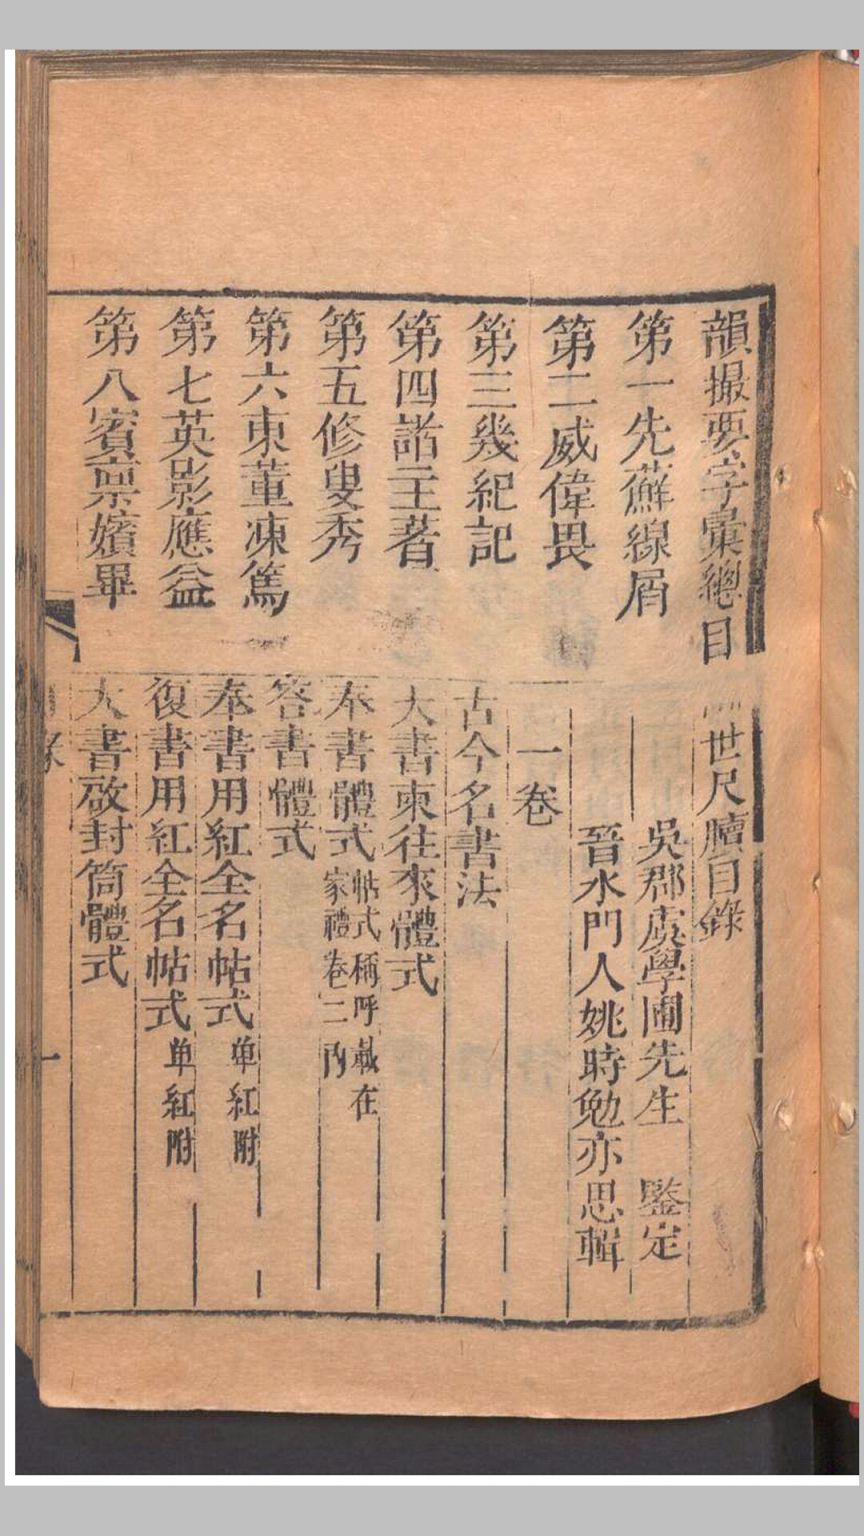 韻撮要字彙總目
第一先蘚線屑
第二威偉畏
第三幾紀記
第四諸主著
第五修叟秀
第六東董凍篤
第七英影應益
第八賓稟嬪畢
世尺牘目錄
吳郡虞學圃先生 鑒定
晉水門人姚時勉亦思輯
一卷
古今名書法
大書柬往來體式
奉書體式 帖式稱呼載在
家禮卷二內
答書體式
奉書用紅全名帖式 单紅附
復書用紅全名帖式 单紅附
大書啟封筒體式
一